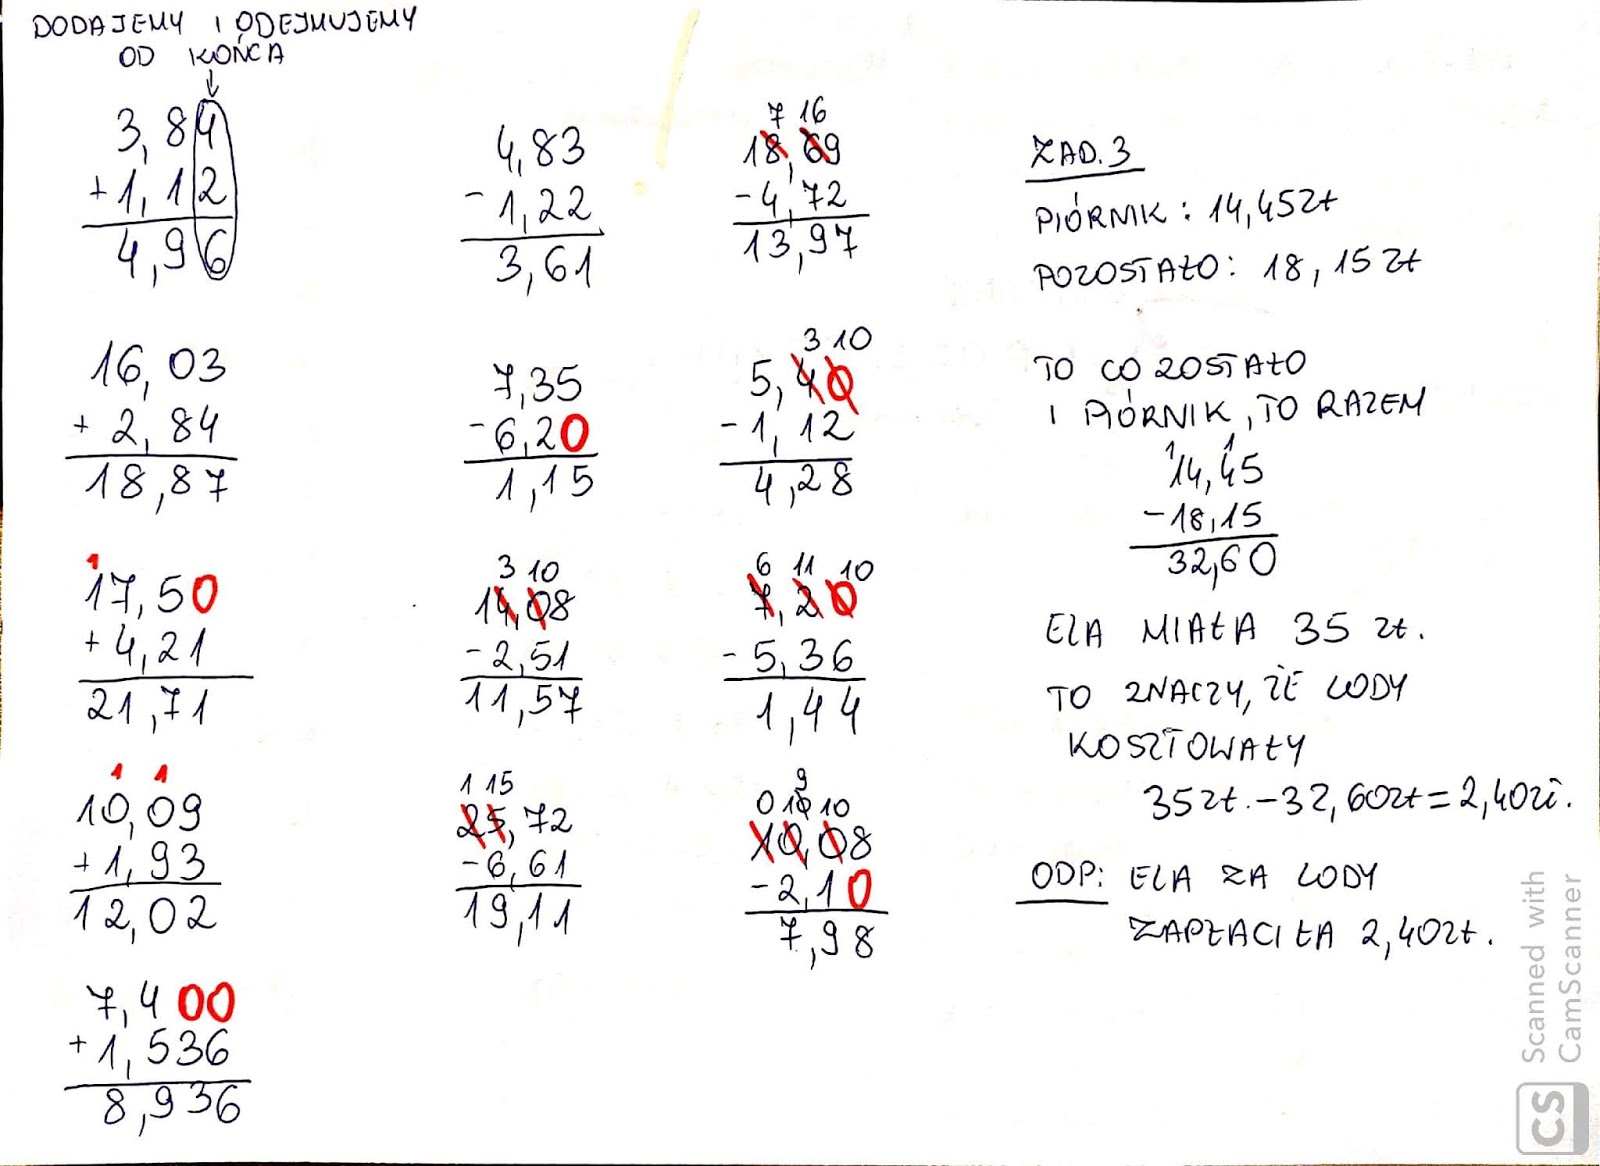 DODAJEMY I ODEJMUJEMY
OD KOŃCA
↓
3,84
+1,12
4,96
16,03
+ 2,84
18,87
1
17,50
+ 4,21
21,71
1 1
10,09
+1,93
12,02
7,400
+1,536
8,936
4,83
- 1,22
3,61
7,35
-6,20
1,15
3 10
14,08
-2,51
11,57
1 15
25,72
-6,61
19,11
7 16
18,69
-4,72
13,97
3 10
5,40
-1,12
4,28
6 11 10
7,20
- 5,36
1,44
9
0 10 10
10,08
-2,10
7,98
ZAD. 3
PIÓRNIK: 14,45zł
POZOSTAŁO: 18,15zł
TO CO ZOSTAŁO
I PIÓRNIK, TO RAZEM
1 1
14,45
-18,15
32,60
ELA MIAŁA 35 zł.
TO ZNACZY, ŻE LODY
KOSZTOWAŁY
35zł.-32,60zł=2,40zł.
ODP: ELA ZA LODY
ZAPŁACIŁA 2,40zł.
Scanned with
CamScanner
CS